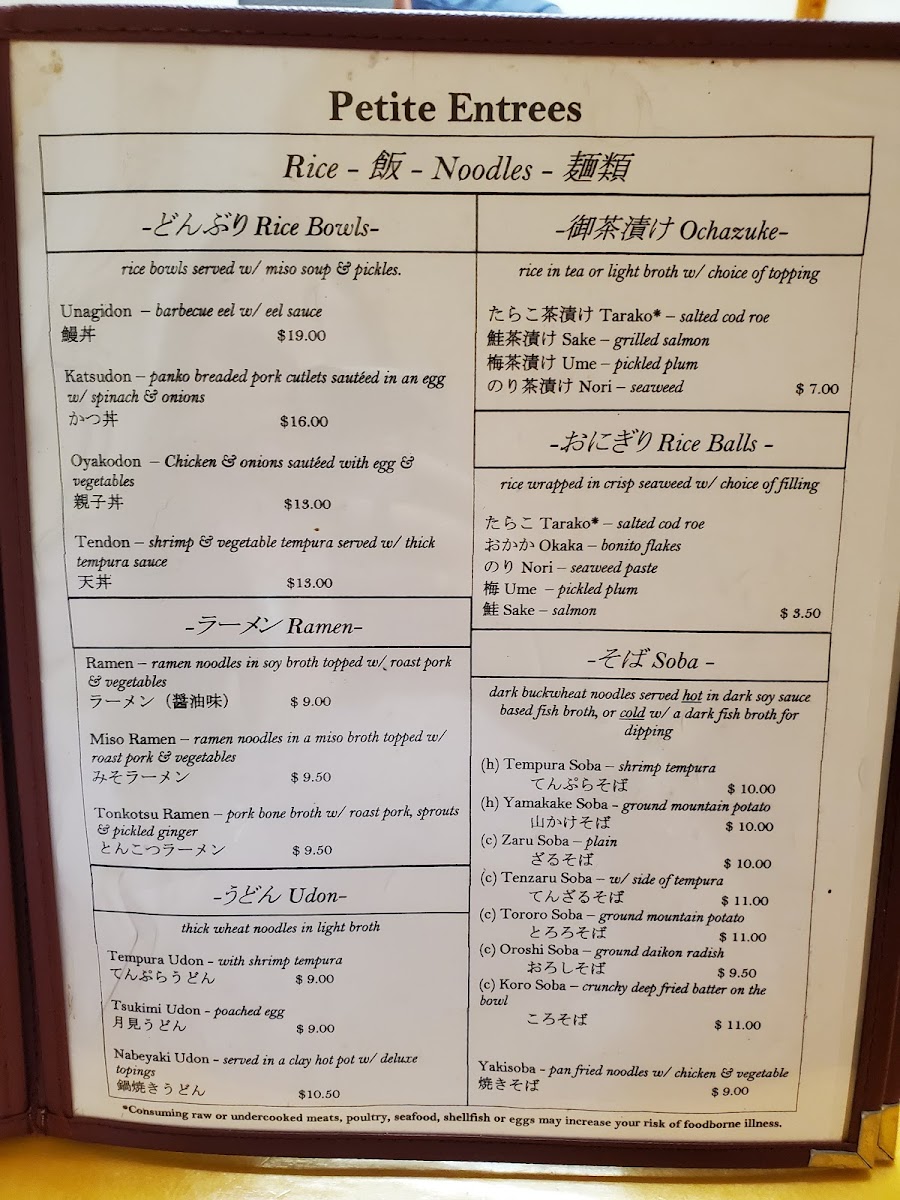 Petite Entrees
Rice - 飯 - Noodles - 麺類
-どんぶり Rice Bowls-
rice bowls served w/ miso soup & pickles.
Unagidon – barbecue eel w/ eel sauce
鰻丼 $19.00
Katsudon – panko breaded pork cutlets sautéed in an egg
w/ spinach & onions
かつ丼 $16.00
Oyakodon – Chicken & onions sautéed with egg &
vegetables
親子丼 $13.00
Tendon – shrimp & vegetable tempura served w/ thick
tempura sauce
天丼 $13.00
-ラーメン Ramen-
Ramen – ramen noodles in soy broth topped w/ roast pork
& vegetables
ラーメン（醤油味） $ 9.00
Miso Ramen – ramen noodles in a miso broth topped w/
roast pork & vegetables
みそラーメン $ 9.50
Tonkotsu Ramen – pork bone broth w/ roast pork, sprouts
& pickled ginger
とんこつラーメン $ 9.50
-うどん Udon-
thick wheat noodles in light broth
Tempura Udon - with shrimp tempura
てんぷらうどん $ 9.00
Tsukimi Udon - poached egg
月見うどん $ 9.00
Nabeyaki Udon - served in a clay hot pot w/ deluxe
topings
鍋焼きうどん $10.50
-御茶漬け Ochazuke-
rice in tea or light broth w/ choice of topping
たらこ茶漬け Tarako* – salted cod roe
鮭茶漬け Sake – grilled salmon
梅茶漬け Ume – pickled plum
のり茶漬け Nori – seaweed $ 7.00
-おにぎり Rice Balls -
rice wrapped in crisp seaweed w/ choice of filling
たらこ Tarako* – salted cod roe
おかか Okaka – bonito flakes
のり Nori – seaweed paste
梅 Ume – pickled plum
鮭 Sake – salmon $ 3.50
-そば Soba -
dark buckwheat noodles served hot in dark soy sauce
based fish broth, or cold w/ a dark fish broth for
dipping
(h) Tempura Soba – shrimp tempura
てんぷらそば $ 10.00
(h) Yamakake Soba - ground mountain potato
山かけそば $ 10.00
(c) Zaru Soba – plain
ざるそば $ 10.00
(c) Tenzaru Soba – w/ side of tempura
てんざるそば $ 11.00
(c) Tororo Soba – ground mountain potato
とろろそば $ 11.00
(c) Oroshi Soba – ground daikon radish
おろしそば $ 9.50
(c) Koro Soba – crunchy deep fried batter on the
bowl
ころそば $ 11.00
Yakisoba - pan fried noodles w/ chicken & vegetable
焼きそば $ 9.00
*Consuming raw or undercooked meats, poultry, seafood, shellfish or eggs may increase your risk of foodborne illness.